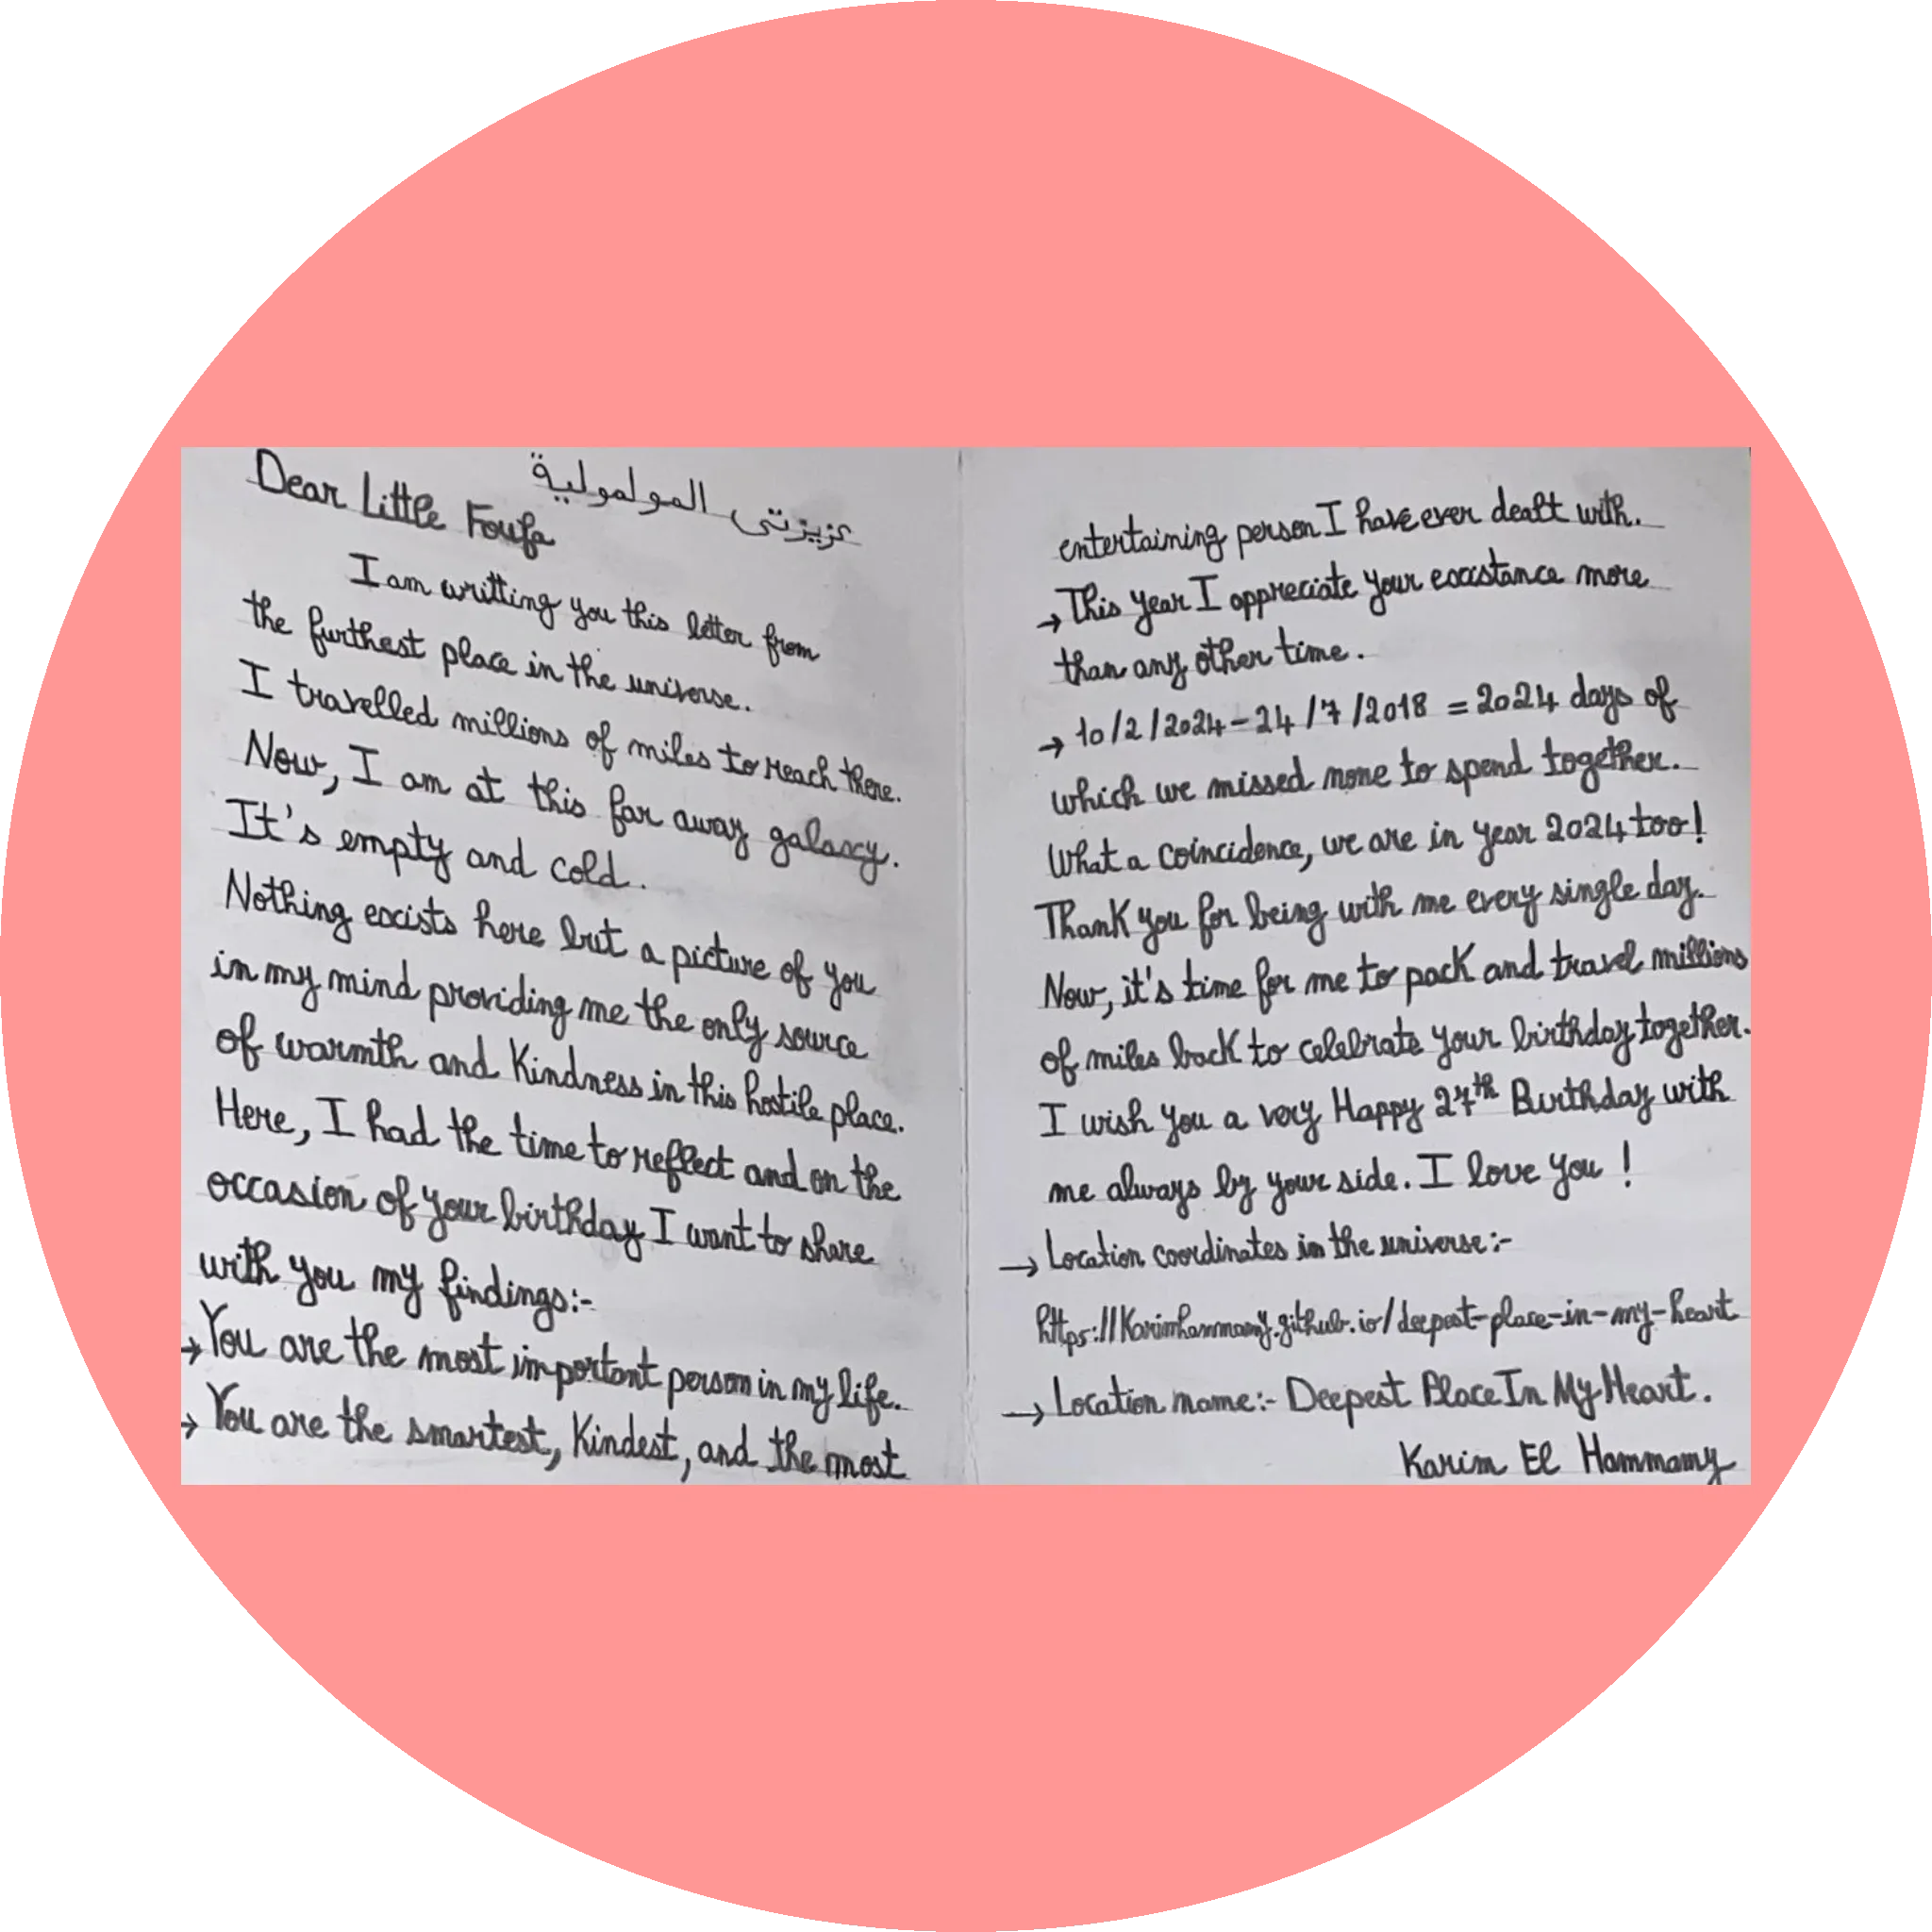 Dear Little Foufa
عزيزتى المولمولية
I am writting you this letter from
the furthest place in the universe.
I travelled millions of miles to reach there.
Now, I am at this far away galaxy.
It's empty and cold.
Nothing exists here but a picture of you
in my mind providing me the only source
of warmth and Kindness in this hostile place.
Here, I had the time to reflect and on the
occasion of your birthday I want to share
with you my findings:-
→ You are the most important person in my life.
→ You are the smartest, Kindest, and the most
entertaining person I have ever dealt with.
→ This year I appreciate your existance more
than any other time.
→ 10/2/2024 - 24/7/2018 = 2024 days of
which we missed none to spend together.
What a coincidence, we are in year 2024 too!
Thank you for being with me every single day.
Now, it's time for me to pack and travel millions
of miles back to celebrate your birthday together.
I wish you a very Happy 27th Birthday with
me always by your side. I love you!
→ Location coordinates in the universe:-
https://Karimhammamy.github.io/deepest-place-in-my-heart
→ Location name:- Deepest Place In My Heart.
Karim El Hammamy